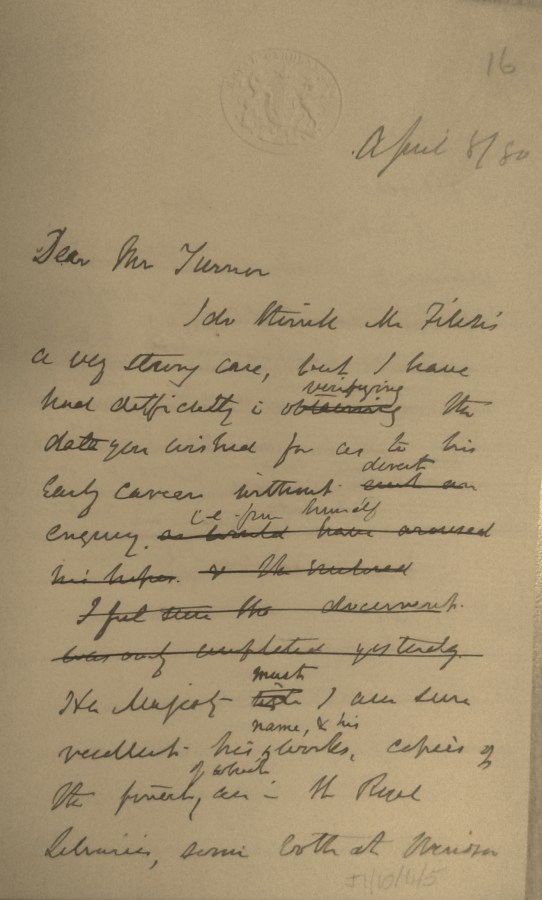 16
April 8/80
Dear Mr Turnor
I do think Mr
a very strong case, but I have
verifying
had difficulty in obtaining the
data you wished for as to his
direct
early career without such an
i-e- from himself
enquiry as would have aroused
his hopes. & the enclosed
I feel sure the document
was only completed yesterday.
must
Her Majesty I am sure
name, & his
recollect his works, copies of
of which
the finest, are in the Royal
Libraries, some both at Windsor